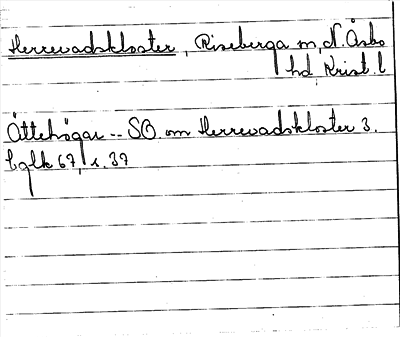 Herrevadskloster, Riseberga sn, N. Åsbo
hd, Krist. l
Ättehögar -- SO. om Herrevadskloster 3.
Eglk 67, s. 37